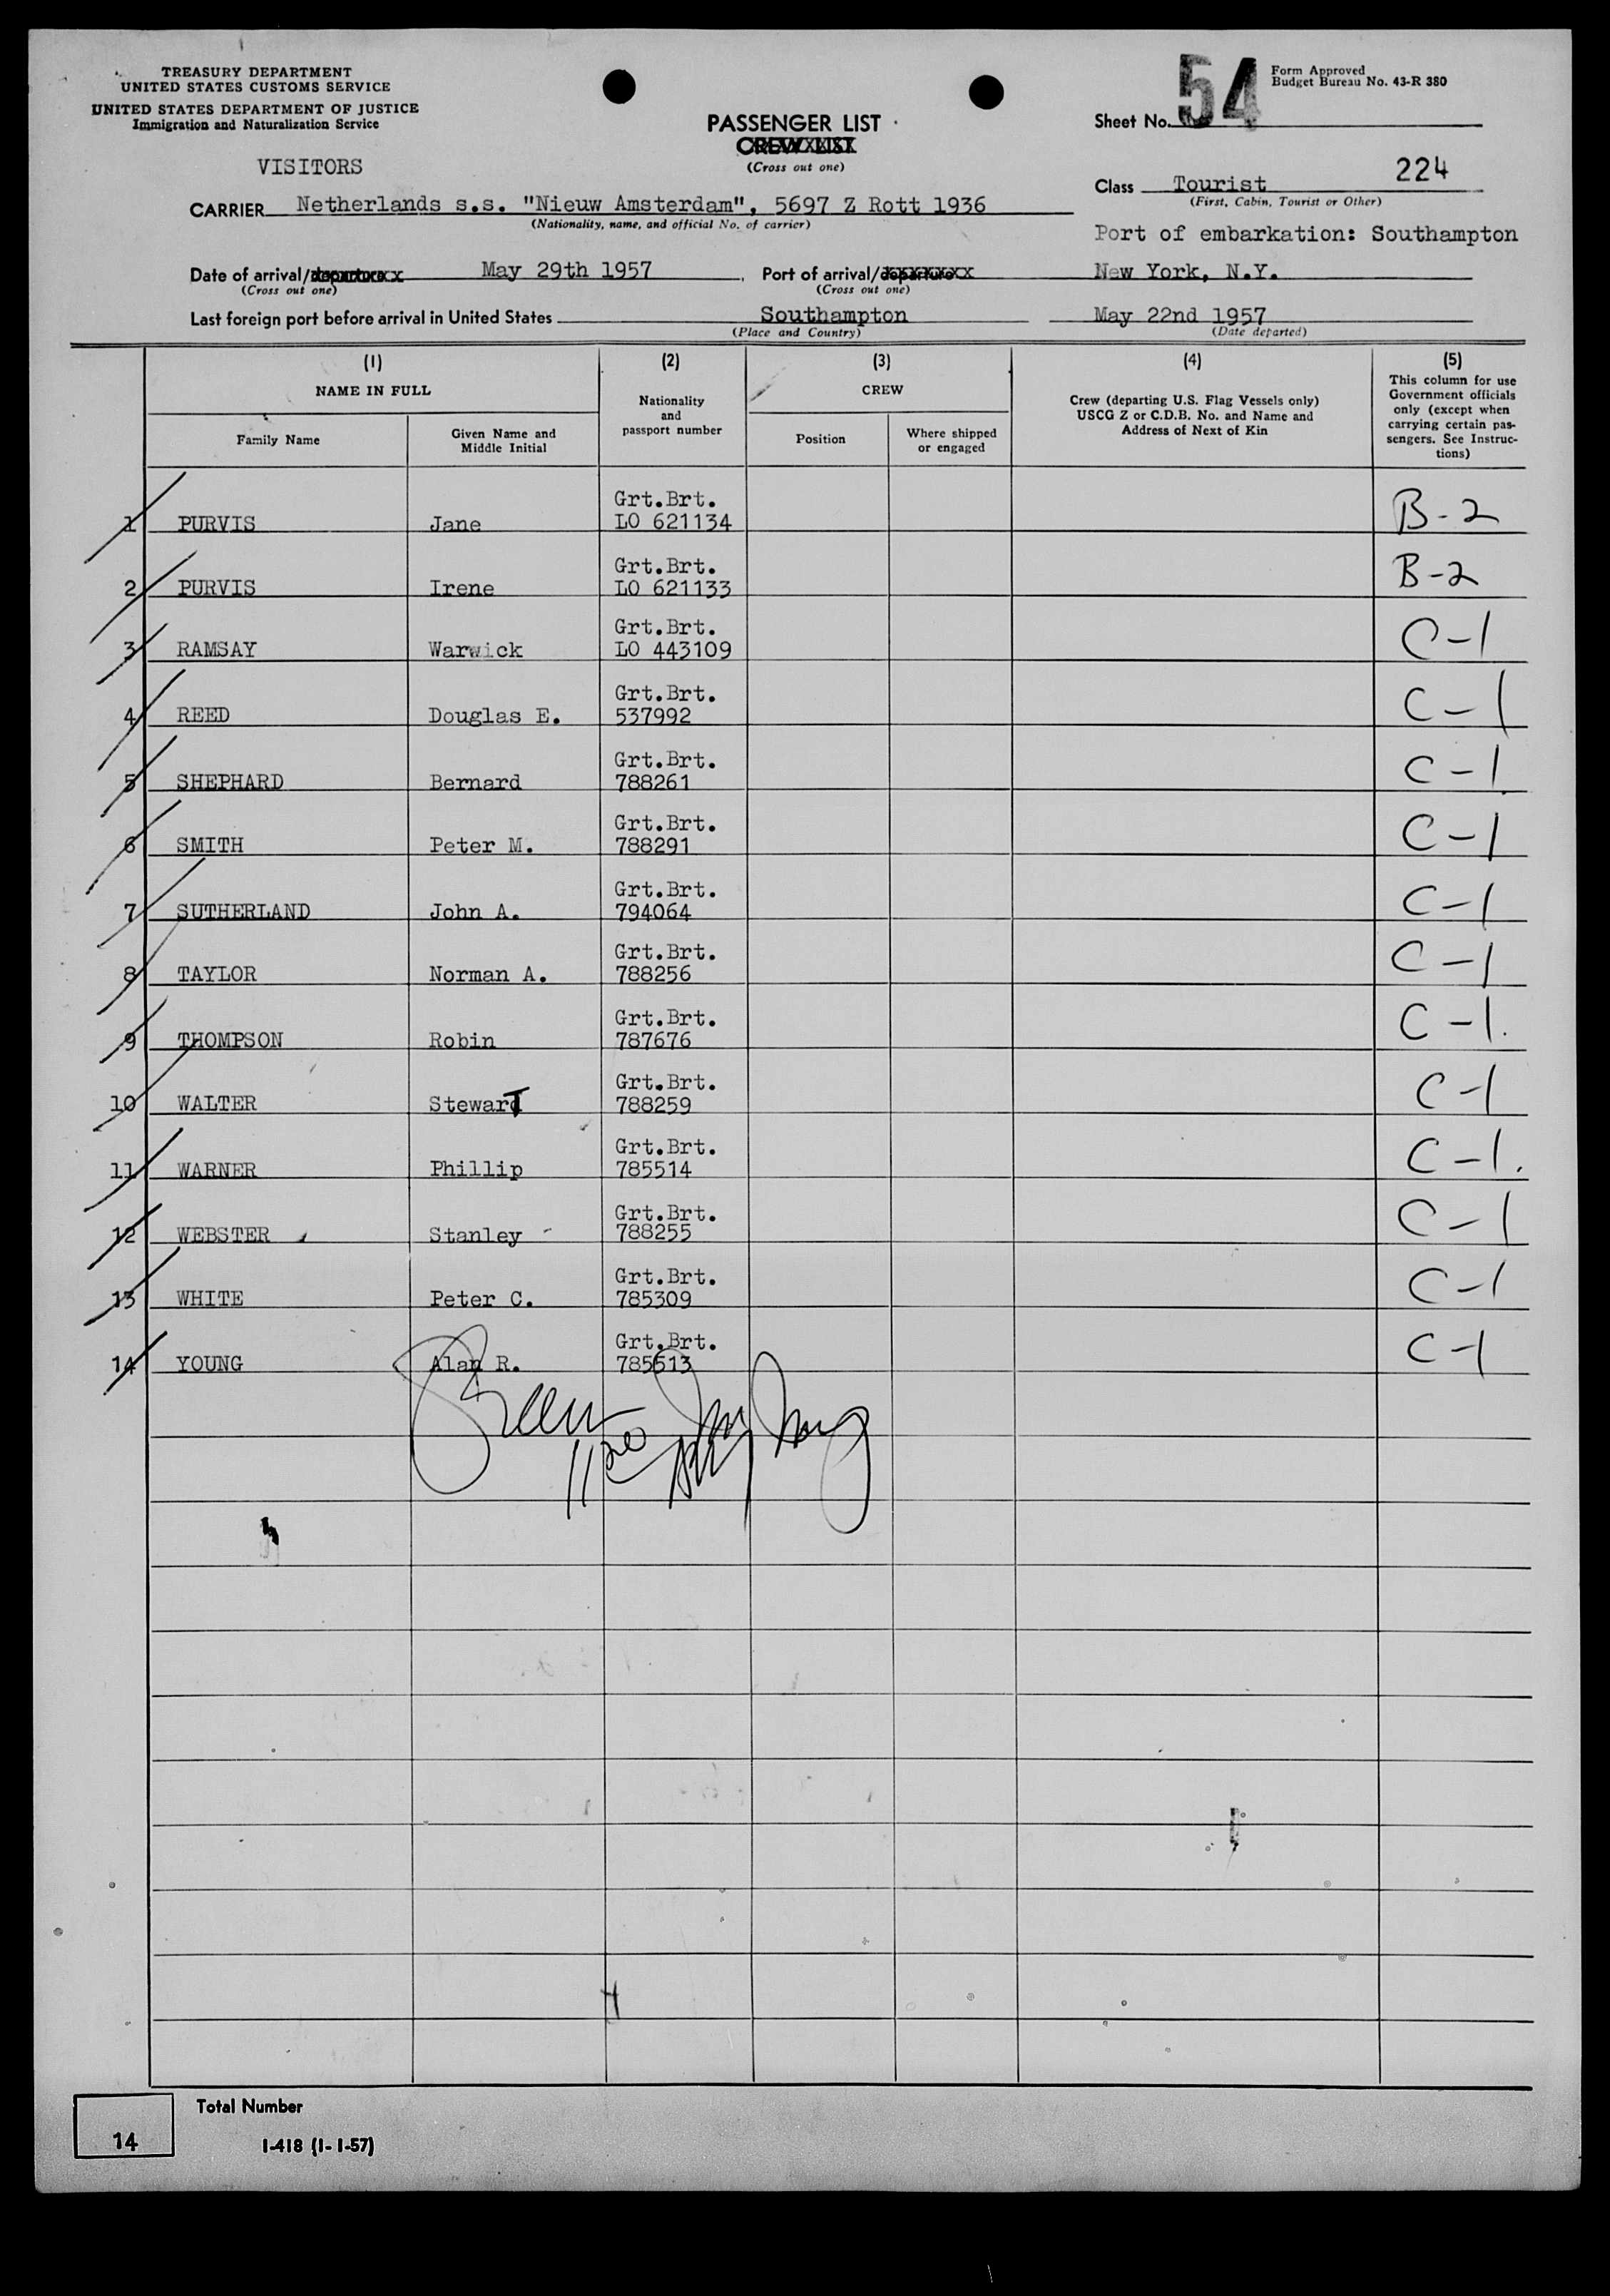 TREASURY DEPARTMENT
UNITED STATES CUSTOMS SERVICE
UNITED STATES DEPARTMENT OF JUSTICE
Immigration and Naturalization Service
Form Approved
Budget Bureau No. 43-R 380
54
Sheet No.
PASSENGER LIST
CREW LIST
(Cross out one)
VISITORS
224
Class Tourist
(First, Cabin, Tourist or Other)
CARRIER Netherlands s.s. "Nieuw Amsterdam", 5697 Z Rott 1936
(Nationality, name, and official No. of carrier)
Port of embarkation: Southampton
Date of arrival/departure May 29th 1957 Port of arrival/departure New York, N.Y.
(Cross out one) (Cross out one)
Last foreign port before arrival in United States Southampton May 22nd 1957
(Place and Country) (Date departed)
(1) (2) (3) (4) (5)
NAME IN FULL
Family Name
Given Name and
Middle Initial
Nationality
and
passport number
CREW
Position
Where shipped
or engaged
Crew (departing U.S. Flag Vessels only)
USCG Z or C.D.B. No. and Name and
Address of Next of Kin
This column for use
Government officials
only (except when
carrying certain pas-
sengers. See Instruc-
tions)
Grt.Brt.
1 PURVIS Jane LO 621134 B-2
Grt.Brt.
2 PURVIS Irene LO 621133 B-2
Grt.Brt.
3 RAMSAY Warwick LO 443109 C-1
Grt.Brt.
4 REED Douglas E. 537992 C-1
Grt.Brt.
5 SHEPHARD Bernard 788261 C-1
Grt.Brt.
6 SMITH Peter M. 788291 C-1
Grt.Brt.
7 SUTHERLAND John A. 794064 C-1
Grt.Brt.
8 TAYLOR Norman A. 788256 C-1
Grt.Brt.
9 THOMPSON Robin 787676 C-1
Grt.Brt.
10 WALTER StewarT 788259 C-1
Grt.Brt.
11 WARNER Phillip 785514 C-1
Grt.Brt.
12 WEBSTER Stanley 788255 C-1
Grt.Brt.
13 WHITE Peter C. 785309 C-1
Grt.Brt.
14 YOUNG Alan R. 785613 C-1
Total Number
14
I-418 (1-1-57)